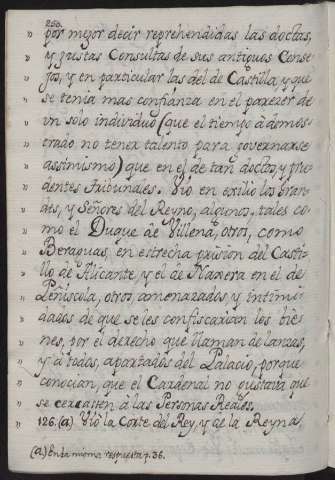 250.
" por mejor decir reprehendidas las doctas,
" y justas Consultas de sus antiguos Conse-
" jos, y en particular las del de Castilla, y que
" se tenia mas confianza en el parezer de
" un solo individuo (que el tiempo à demos-
" trado no tener talento para governarse
" assimismo) que en el de tan doctos, y pru-
" dentes Tribunales. Vió en exilio los Gran-
" des, y Señores del Reyno, algunos, tales co-
" mo el Duque de Villena, otros, como
" Beraguas, en estrecha prision del Casti-
" llo de Alicante, y el de Naxera en el de
" Peñiscola, otros, amenazados, y intimi-
" dados de que se les confiscarian los bie-
" nes, por el derecho que llaman de lanzas,
" y à todos, apartados del Palacio, porque
" conocian, que el Cardenal no gustava que
" se cercassen à las Personas Reales.
" 126. (a) Vió la Corte del Rey, y de la Reyna
(a) En la misma respuesta p. 36.